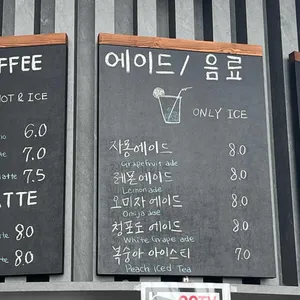 FFEE
OT & ICE
6.0
7.0
7.5
ATTE
8.0
8.0
에이드 / 음료
ONLY ICE
자몽에이드 8.0
Grapefruit ade
레몬에이드 8.0
Lemonade
오미자에이드 8.0
Omija ade
청포도에이드 8.0
White Grape ade
복숭아 아이스티 7.0
Peach Iced Tea